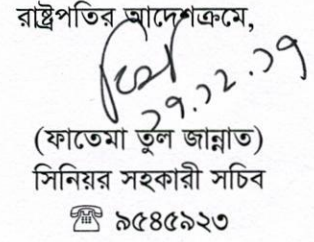 রাষ্ট্রপতির আদেশক্রমে,
২৭.১২.১৭
(ফাতেমা তুল জান্নাত)
সিনিয়র সহকারী সচিব
☏ ৯৫৪৫৯২৩